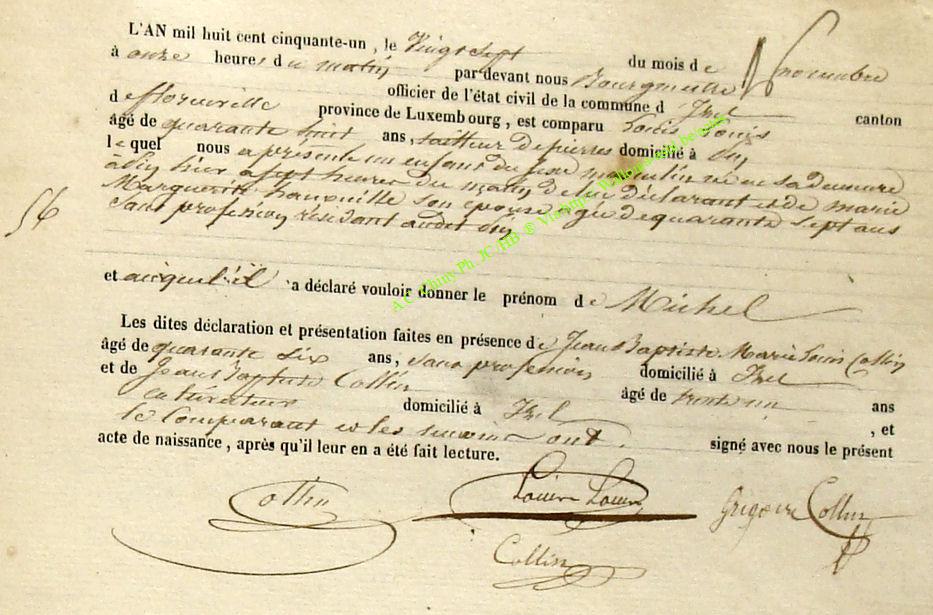 L'AN mil huit cent cinquante-un, le Vingt sept du mois de novembre
à onze heures du matin par devant nous Bourgmestre
officier de l'état civil de la commune d Izel canton
de florenville province de Luxembourg, est comparu Louis Louis
âgé de quarante huit ans, tailleur de pierres domicilié à
lequel nous a présenté un enfant du sexe masculin né en sa demeure
hier a sept heures du matin de lui déclarant et de marie
Marguerite son épouse agée de quarante sept ans
sans profession résidant audit
56
et auquel il a déclaré vouloir donner le prénom de Michel
Les dites déclaration et présentation faites en présence de Jean Baptiste Marie Louis Collin
âgé de quarante six ans, sans profession domicilié à Izel
et de Jean Baptiste Collin âgé de trente un ans
cultivateur domicilié à Izel , et
le Comparant et les temoins ont signé avec nous le présent
acte de naissance, après qu'il leur en a été fait lecture.
Collin Louis Grégoire Collin
Collin